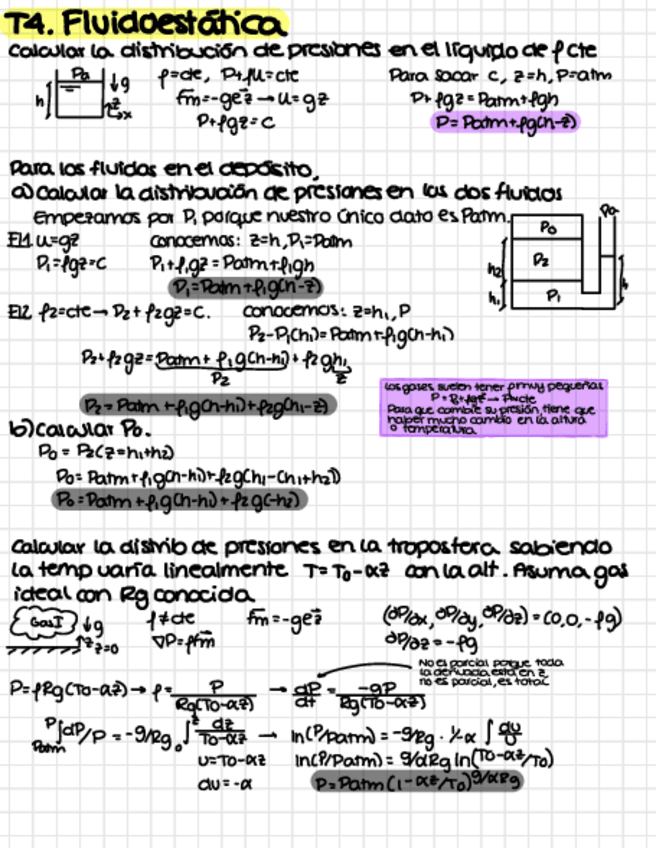 T4. Fluidoestática
Calcular la distribución de presiones en el líquido de ρ cte
Pa
↓g
h
z
x
ρ=cte, P+ρU=cte
f̄m=-gez̄ → U=gz
P+ρgz=C
Para sacar c, z=h, P=atm
P+ρgz=Patm+ρgh
P=Patm+ρg(h-z)
Para los fluidos en el depósito,
a) Calcular la distribución de presiones en los dos fluidos
Empezamos por P, porque nuestro único dato es Patm.
Fl1. u=gz conocemos: z=h, P1=Patm
P1=ρgz=C P1+ρ1gz=Patm+ρ1gh
P1=Patm+ρ1g(h-z)
Pa
P0
P2
P1
h2
h1
h
Fl2. ρ2=cte → P2+ρ2gz=C. conocemos: z=h1, P
P2-P1(h1)=Patm+ρ1g(h-h1)
P2+ρ2gz=Patm+ρ1g(h-h1)+ρ2gh1
P2
z
P2=Patm+ρ1g(h-h1)+ρ2g(h1-z)
Los gases suelen tener ρ muy pequeñas
Para que cambie su presión, tiene que
haber mucho cambio en la altura
o temperatura.
b) Calcular P0.
P0=P2(z=h1+h2)
P0=Patm+ρ1g(h-h1)+ρ2g(h1-(h1+h2))
P0=Patm+ρ1g(h-h1)+ρ2g(-h2)
Calcular la distrib de presiones en la troposfera sabiendo
la temp varía linealmente T=T0-αz con la alt. Asuma gas
ideal con Rg conocida
Gas I
↓g
z
z=0
ρ≠cte f̄m=-gez̄
∇P=ρf̄m
(∂P/∂x, ∂P/∂y, ∂P/∂z)=(0,0,-ρg)
∂P/∂z=-ρg
No es parcial porque toda
la derivada está en z,
no es parcial, es total
P=ρRg(T0-αz) → ρ=P/Rg(T0-αz) → dP/dt=-gP/Rg(T0-αz)
Patm∫P dP/P=-g/Rg 0∫z dz/T0-αz → ln(P/Patm)=-g/Rg·1/-α ∫du/U
U=T0-αz ln(P/Patm)=g/αRg ln(T0-αz/T0)
du=-α P=Patm(1-αz/T0)^g/αRg